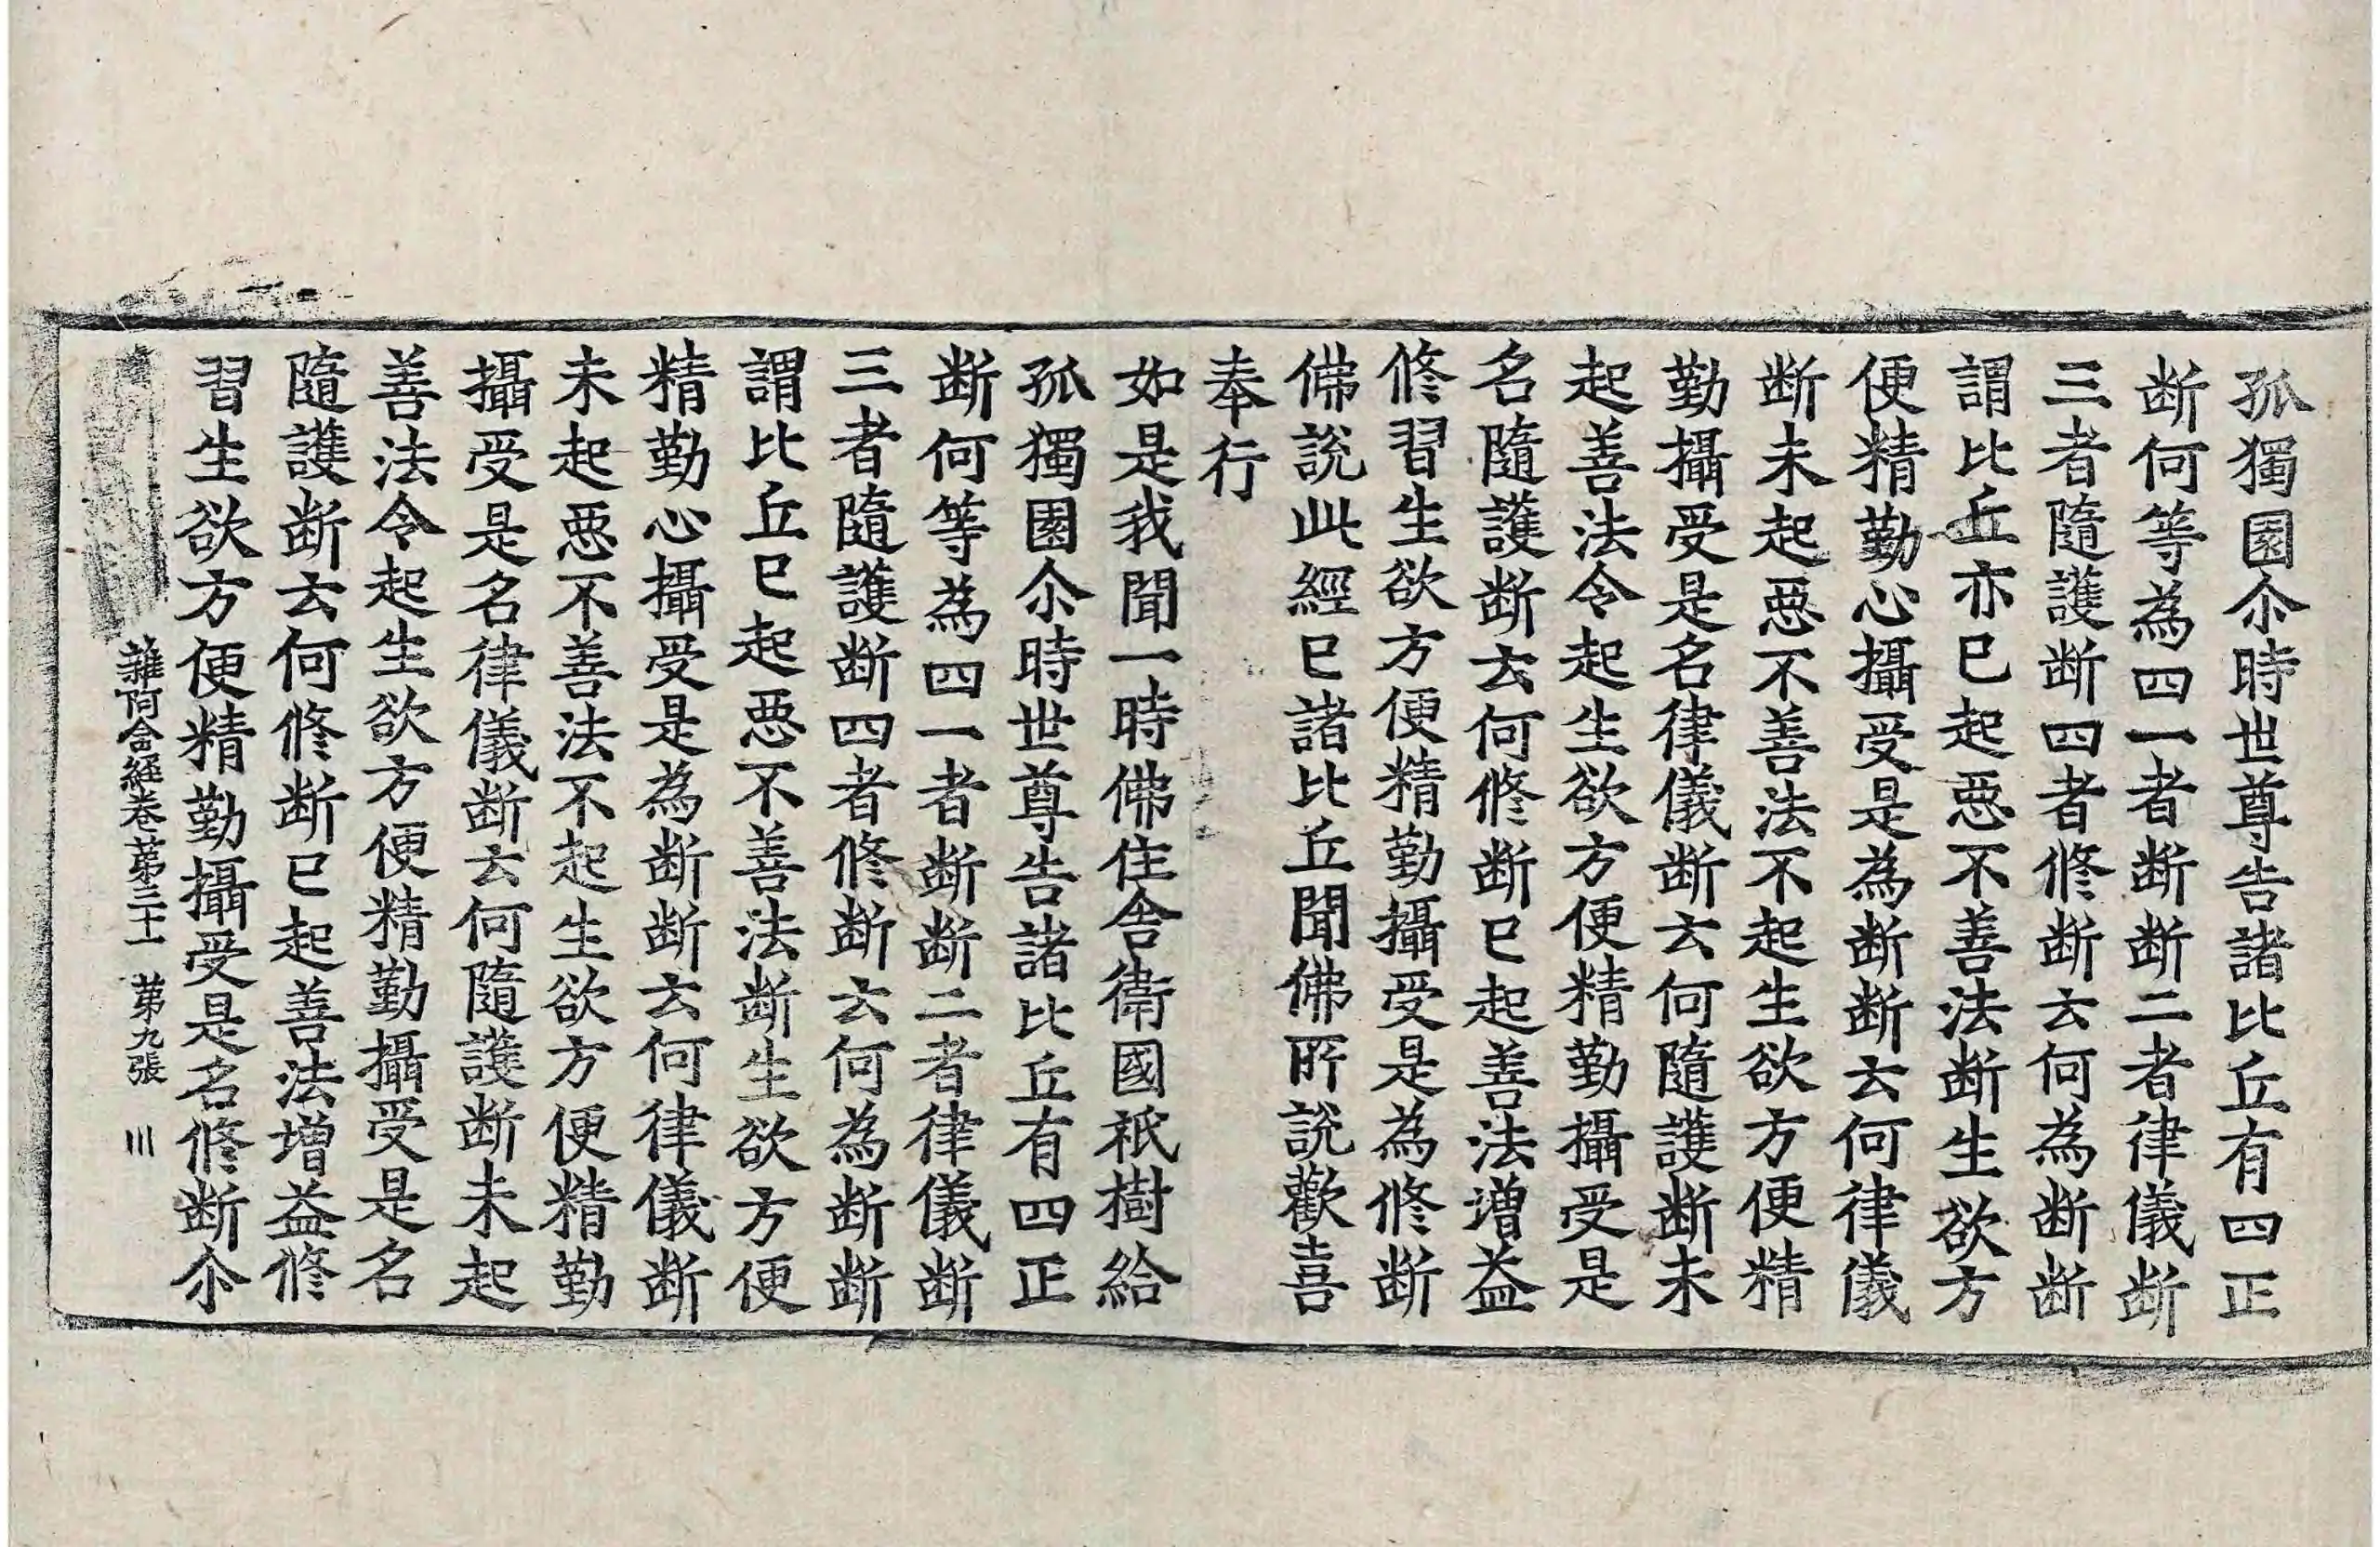 孤獨園尒時世尊告諸比丘有四正
断何等為四一者断断二者律儀断
三者隨護断四者修断云何為断断
謂比丘亦已起惡不善法断生欲方
便精勤心攝受是為断断云何律儀
断未起惡不善法不起生欲方便精
勤攝受是名律儀断云何隨護断未
起善法令起生欲方便精勤攝受是
名隨護断云何修断已起善法增益
修習生欲方便精勤攝受是為修断
佛說此經已諸比丘聞佛所說歡喜
奉行
如是我聞一時佛住舍衛國祇樹給
孤獨園尒時世尊告諸比丘有四正
断何等為四一者断断二者律儀断
三者隨護断四者修断云何為断断
謂比丘已起惡不善法断生欲方便
精勤心攝受是為断断云何律儀断
未起惡不善法不起生欲方便精勤
攝受是名律儀断云何隨護断未起
善法令起生欲方便精勤攝受是名
隨護断云何修断已起善法增益修
習生欲方便精勤攝受是名修断尒
雜阿含經卷第三十一 第九張 川